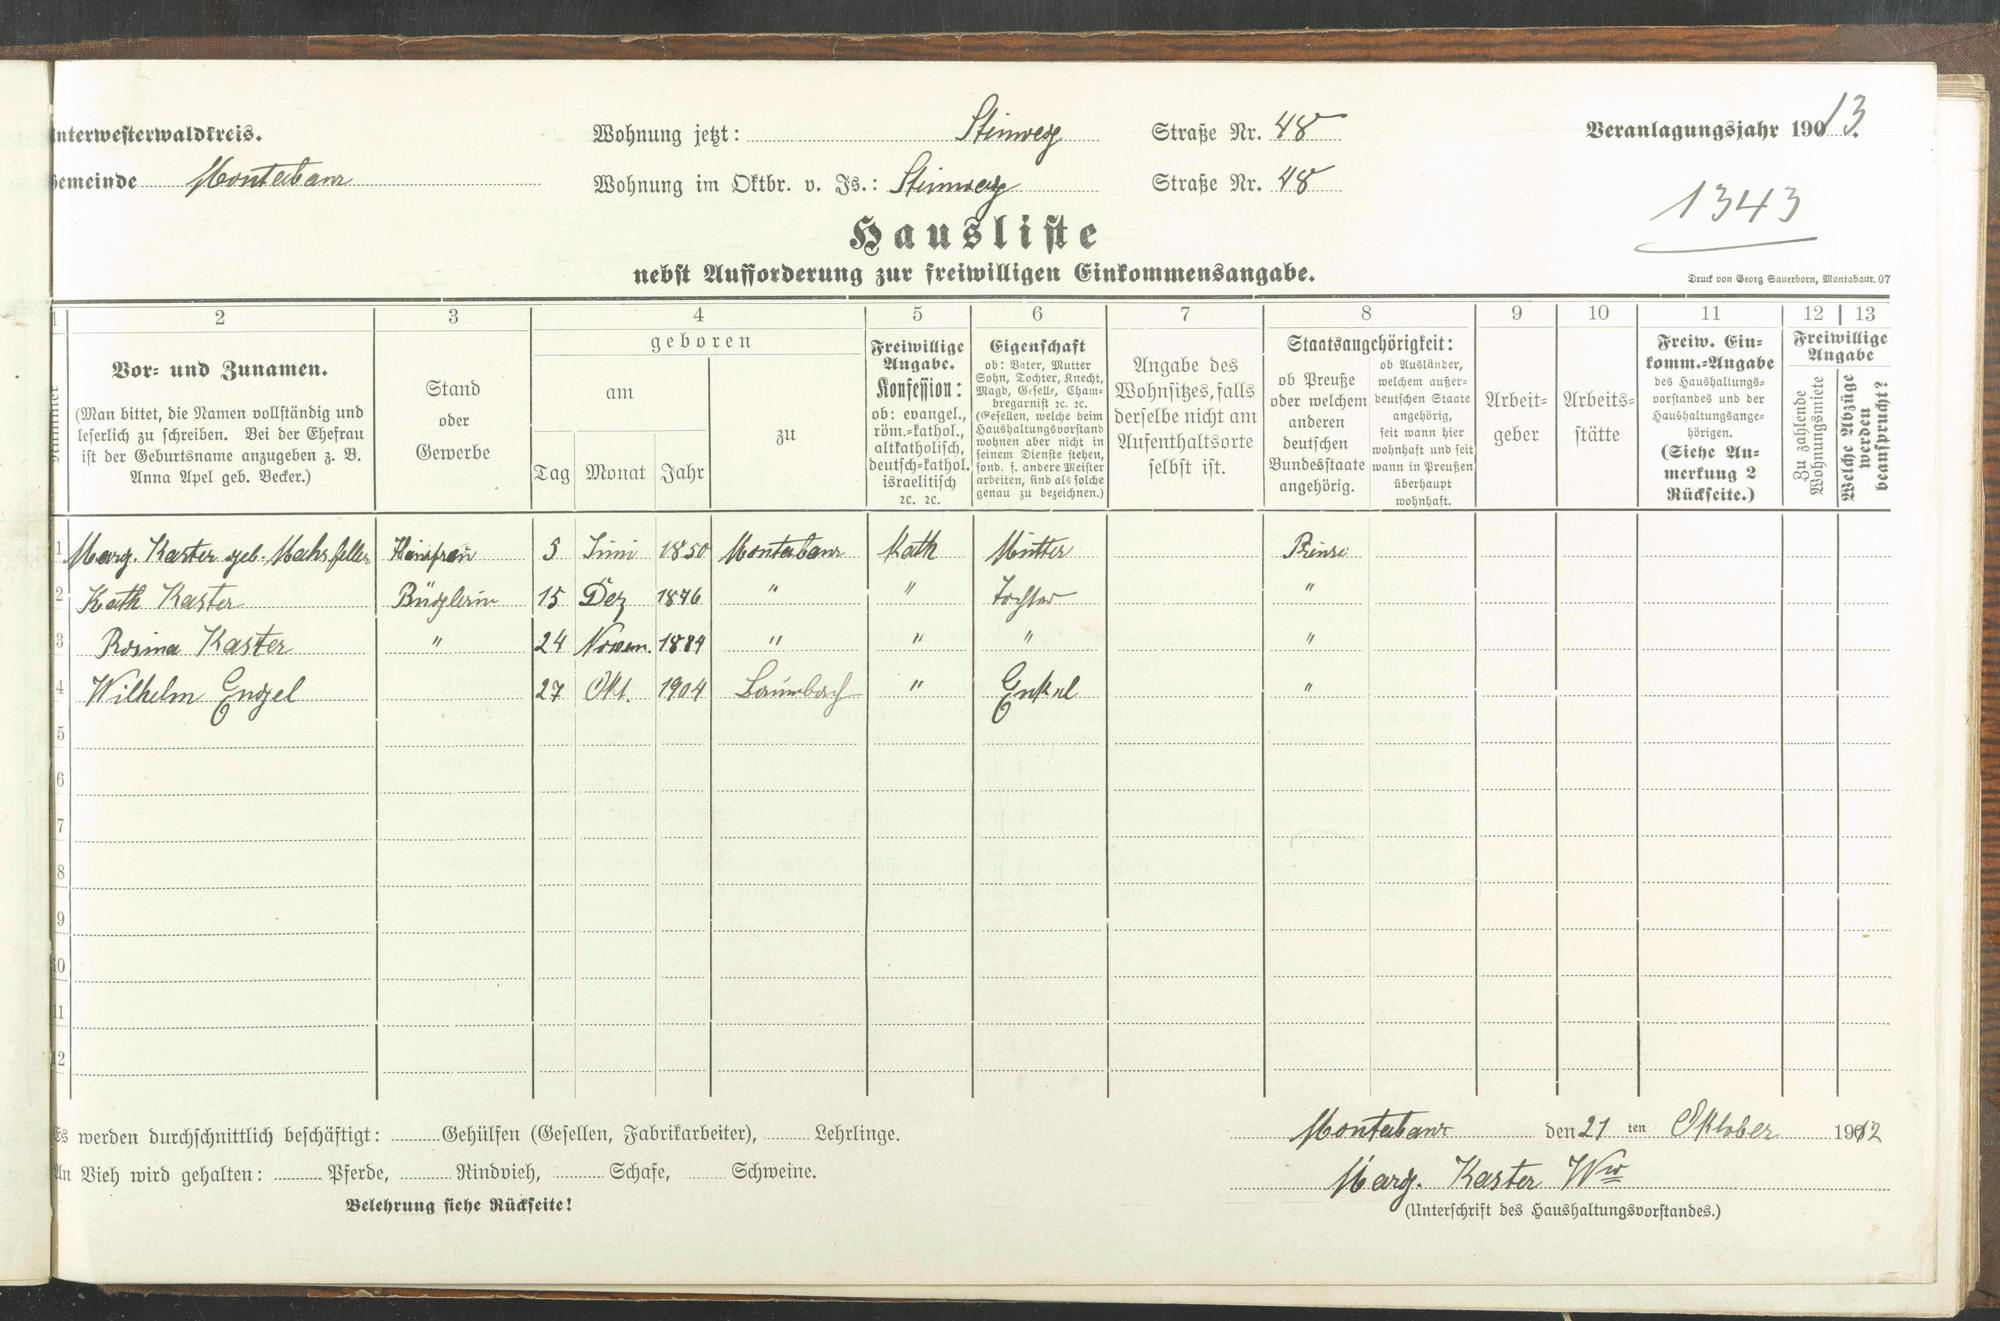 Unterwesterwaldkreis.
Wohnung jetzt: Steinweg Straße Nr. 48
Veranlagungsjahr 190 13.
Gemeinde Montabaur
Wohnung im Oktbr. v. Js.: Steinweg Straße Nr. 48
1343
Hausliste
nebst Aufforderung zur freiwilligen Einkommensangabe.
Druck von Georg Sauerborn, Montabaur. 07
1 2 3 4 5 6 7 8 9 10 11 12 13
Nummer
Vor- und Zunamen.
(Man bittet, die Namen vollständig und
leserlich zu schreiben. Bei der Ehefrau
ist der Geburtsname anzugeben z. B.
Anna Apel geb. Becker.)
Stand
oder
Gewerbe
geboren
am
Tag Monat Jahr
zu
Freiwillige
Angabe.
Konfession:
ob: evangel.,
röm.-kathol.,
altkatholisch,
deutsch-kathol.
israelitisch
ꝛc. ꝛc.
Eigenschaft
ob: Vater, Mutter
Sohn, Tochter, Knecht,
Magd, Geselle, Cham-
bregarnist ꝛc. ꝛc.
(Gesellen, welche beim
Haushaltungsvorstand
wohnen aber nicht in
seinem Dienste stehen,
sond. f. andere Meister
arbeiten, sind als solche
genau zu bezeichnen.)
Angabe des
Wohnsitzes, falls
derselbe nicht am
Aufenthaltsorte
selbst ist.
Staatsangehörigkeit:
ob Preuße
oder welchem
anderen
deutschen
Bundesstaate
angehörig.
ob Ausländer,
welchem außer-
deutschen Staate
angehörig,
seit wann hier
wohnhaft und seit
wann in Preußen
überhaupt
wohnhaft.
Arbeit-
geber
Arbeits-
stätte
Freiw. Ein-
komm.-Angabe
des Haushaltungs-
vorstandes und der
Haushaltungsange-
hörigen.
(Siehe An-
merkung 2
Rückseite.)
Freiwillige
Angabe
Zu zahlende
Wohnungsmiete
Welche Abzüge
werden
beansprucht?
1 Marg. Kaster geb. Hausfrau 5 Juni 1850 Montabaur Kath Mutter
2 Kath Kaster Büglerin 15 Dez 1876 " " Tochter "
3 Rosina Kaster " 24 Novem. 1884 " " " "
4 Wilhelm Engel 27 Okt. 1904 Baumbach " Enkel "
5
6
7
8
9
10
11
12
Es werden durchschnittlich beschäftigt: Gehülfen (Gesellen, Fabrikarbeiter), Lehrlinge.
Montabaur den 21 ten Oktober 1912
An Vieh wird gehalten: Pferde, Rindvieh, Schafe, Schweine.
Marg. Kaster Ww
Belehrung siehe Rückseite!
(Unterschrift des Haushaltungsvorstandes.)